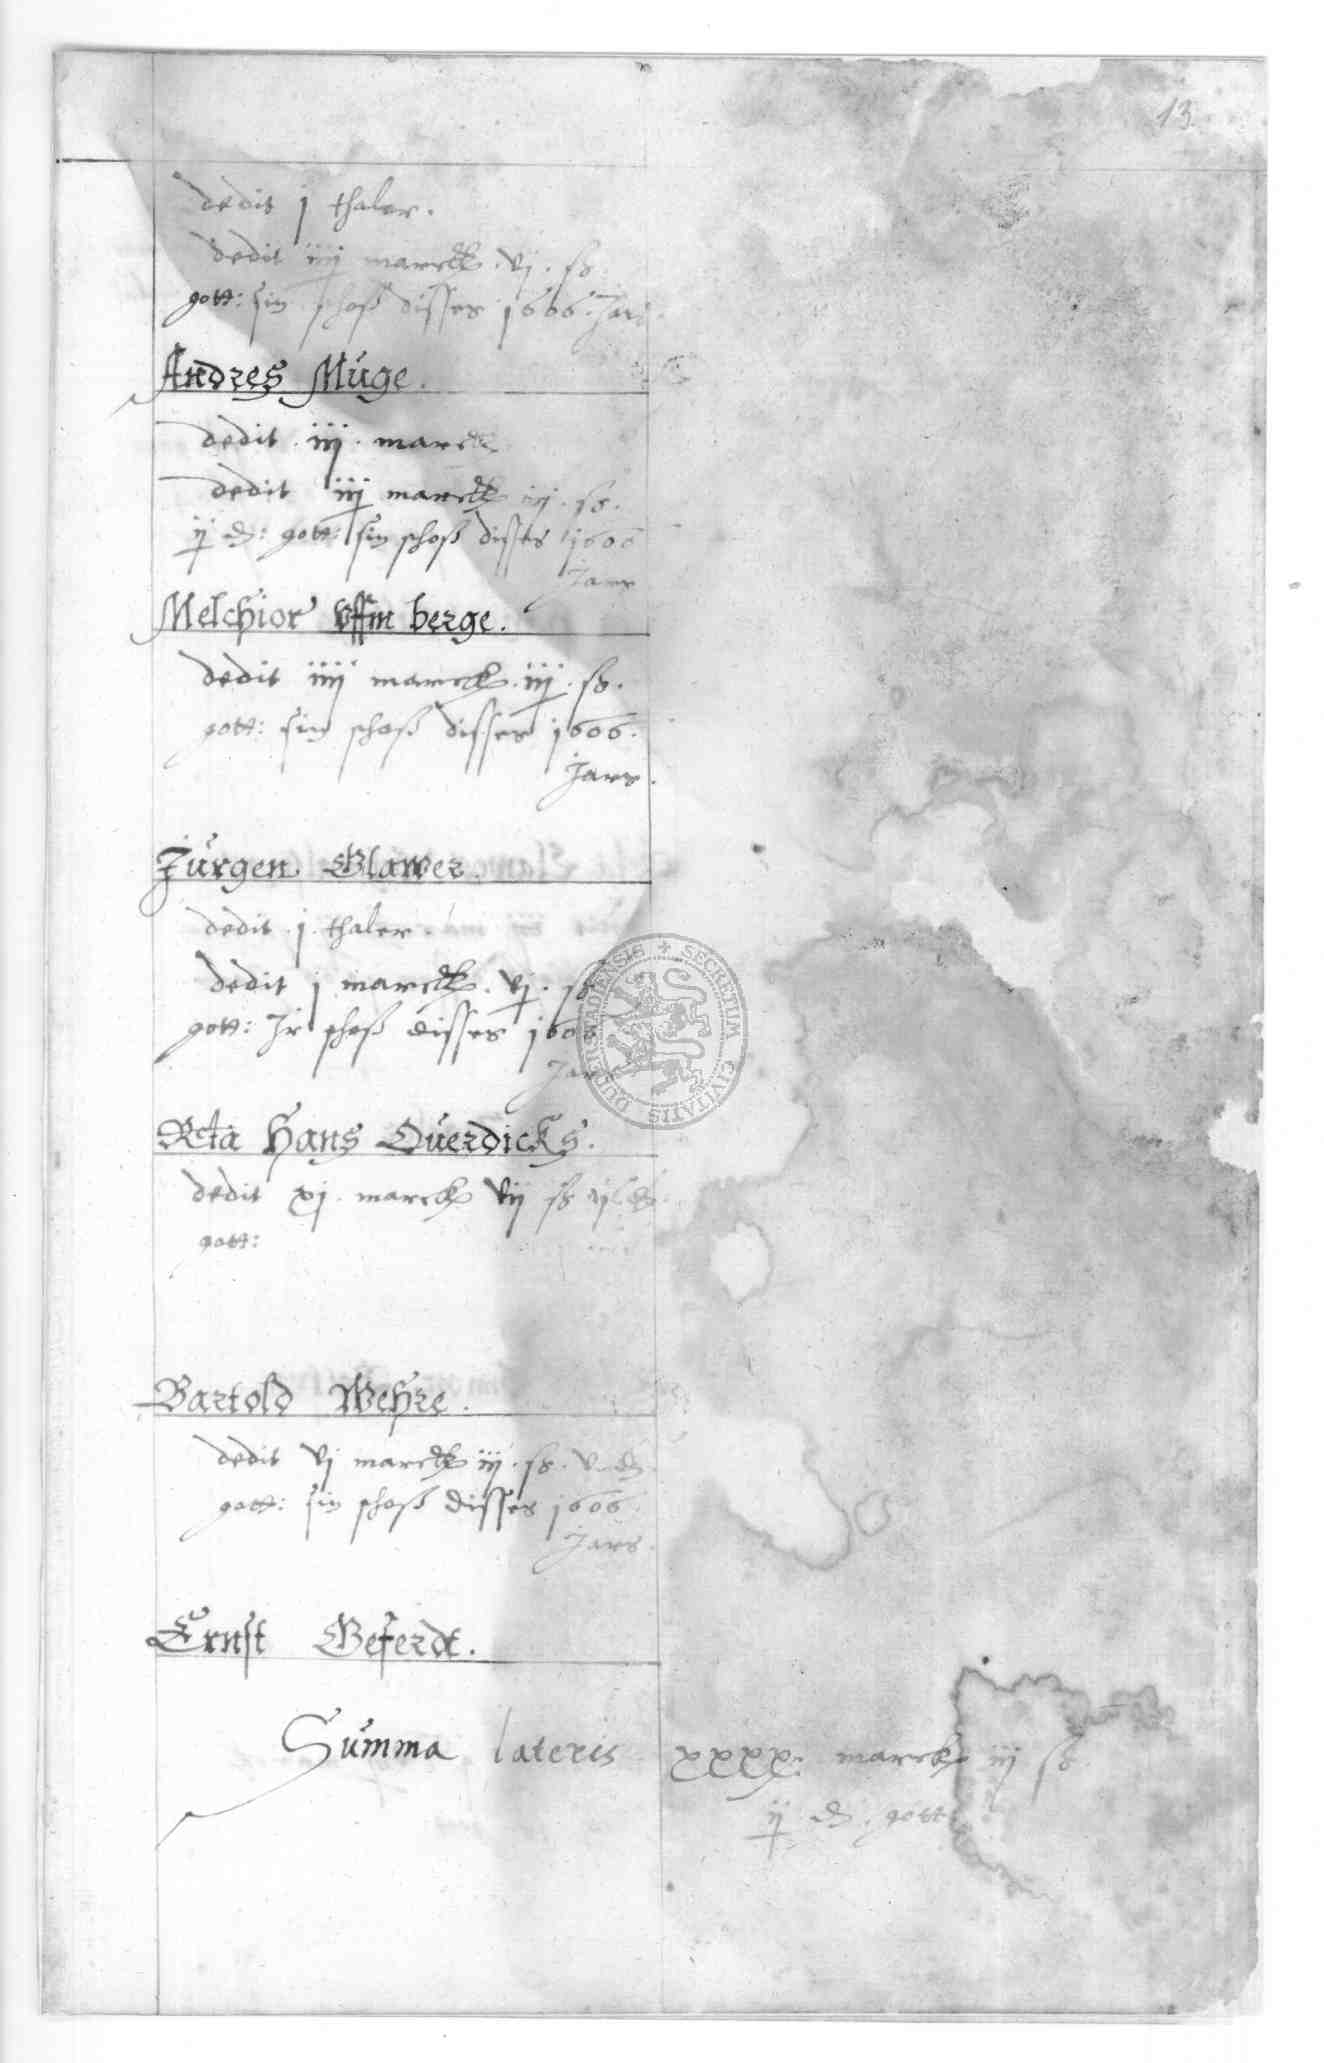 13
dedit j thaler.
dedit iiij marck. vj. ß
gott: sin schoß disses 1606. Jars
Andres Müge.
dedit. iij. marck
dedit iij marck iij. ß.
ij ₰: gott: sin schoß disses 1606
Jars
Melchior vffm berge.
dedit iiij marck. iij. ß.
gott: sin schoß disses 1606.
Jars.
Jürgen Glawer.
dedit. j. thaler.
dedit j marck. vj. ß
gott: Jr schoß disses 1606
Jars
SECRETUM CIVITATIS DUDERSTADIENSIS
Rcta Hans Ouerdicks.
dedit xj. marck vij ß ij ₰
gott:
Bartold Wehre.
dedit vj marck iij. ß. v ₰
gott: sin schoß disses 1606.
Jars.
Ernst Geferdt.
Summa lateris xxxx: marck iij ß
ij ₰. gott